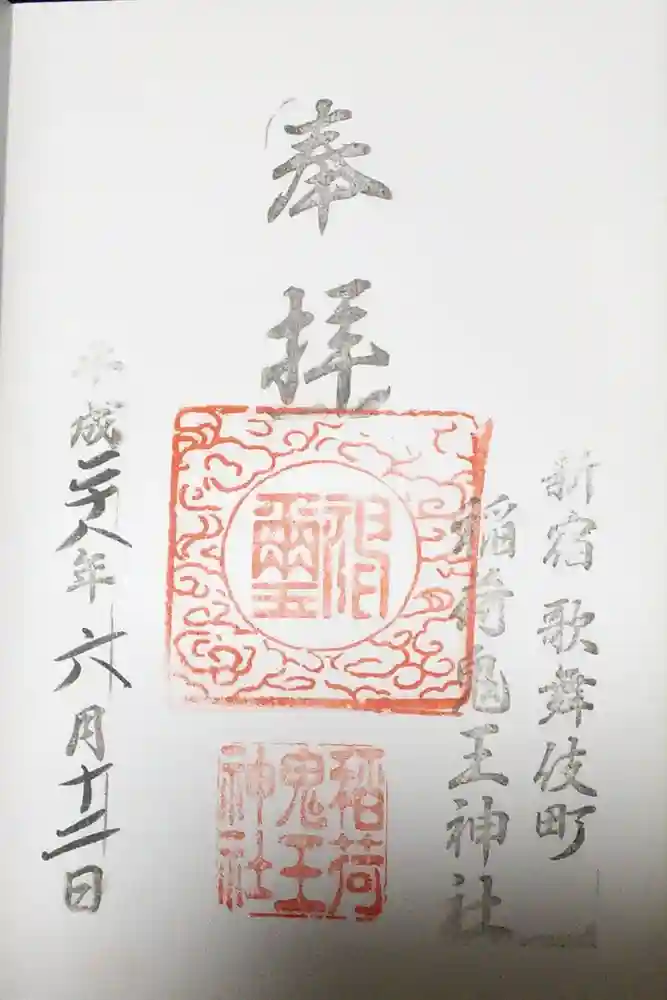 新宿歌舞伎町
稲荷鬼王神社
奉拝
稲荷
鬼王
神社
平成二十八年六月十二日